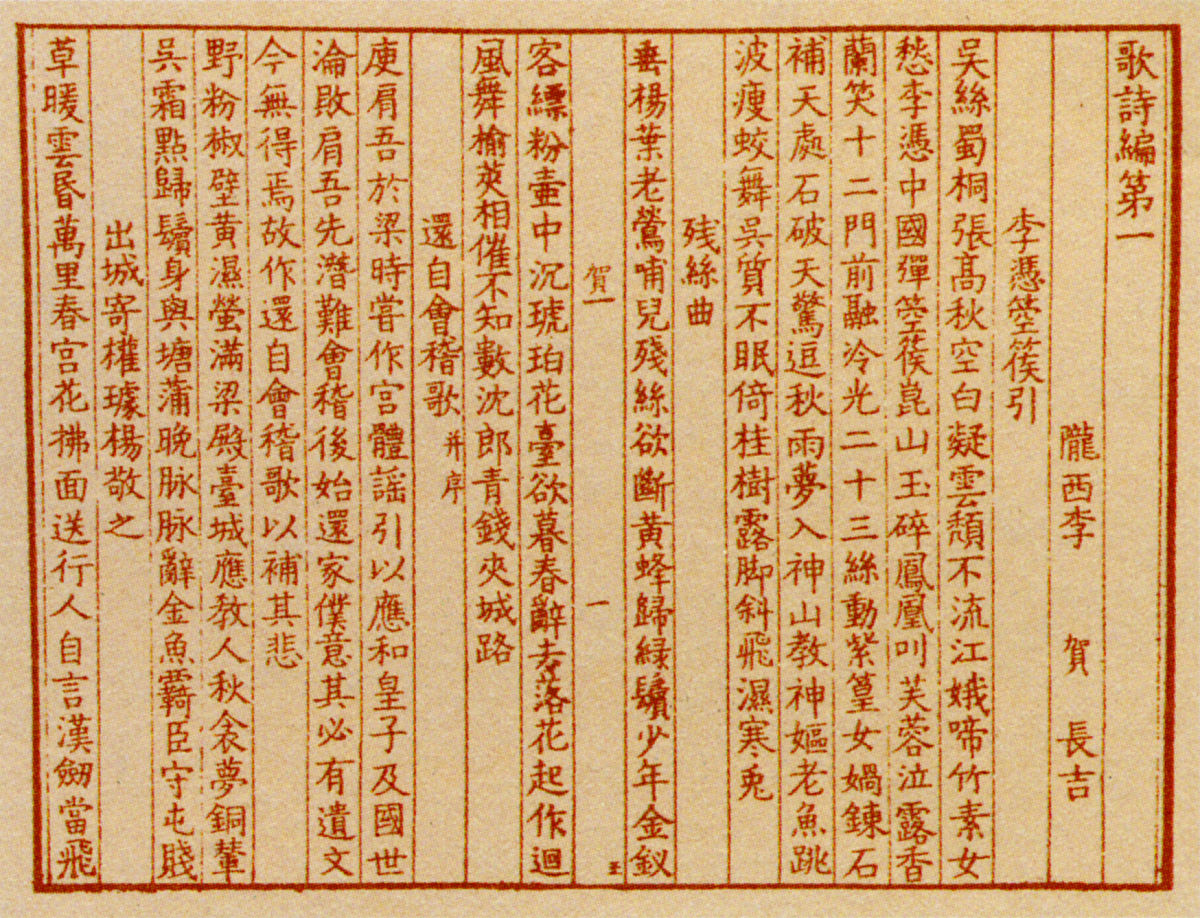 歌詩編第一
隴西李　賀　長吉
李憑箜篌引
吳絲蜀桐張髙秋空白凝雲頽不流江娥啼竹素女
愁李憑中國彈箜篌崑山玉碎鳳凰叫芙蓉泣露香
蘭笑十二門前融冷光二十三絲動紫篁女媧鍊石
補天處石破天驚逗秋雨夢入神山教神嫗老魚跳
波瘦蛟舞吳質不眠倚桂樹露脚斜飛濕寒兎
残絲曲
垂楊葉老鶯哺兒殘絲欲斷黃蜂歸緑鬢少年金釵
賀一
一
王
客縹粉壷中沉琥珀花臺欲暮春辭去落花起作迴
風舞榆莢相催不知數沈郎青錢夾城路
還自會稽歌 并序
庾肩吾於梁時嘗作宮體謡引以應和皇子及國世
淪敗肩吾先潛難會稽後始還家僕意其必有遺文
今無得焉故作還自會稽歌以補其悲
野粉椒壁黃濕螢滿梁殿臺城應教人秋衾夢銅輦
吳霜點歸鬢身與塘蒲晚脉脉辭金魚覊臣守屯賤
出城寄權璩楊敬之
草暖雲昏萬里春宮花拂面送行人自言漢劒當飛